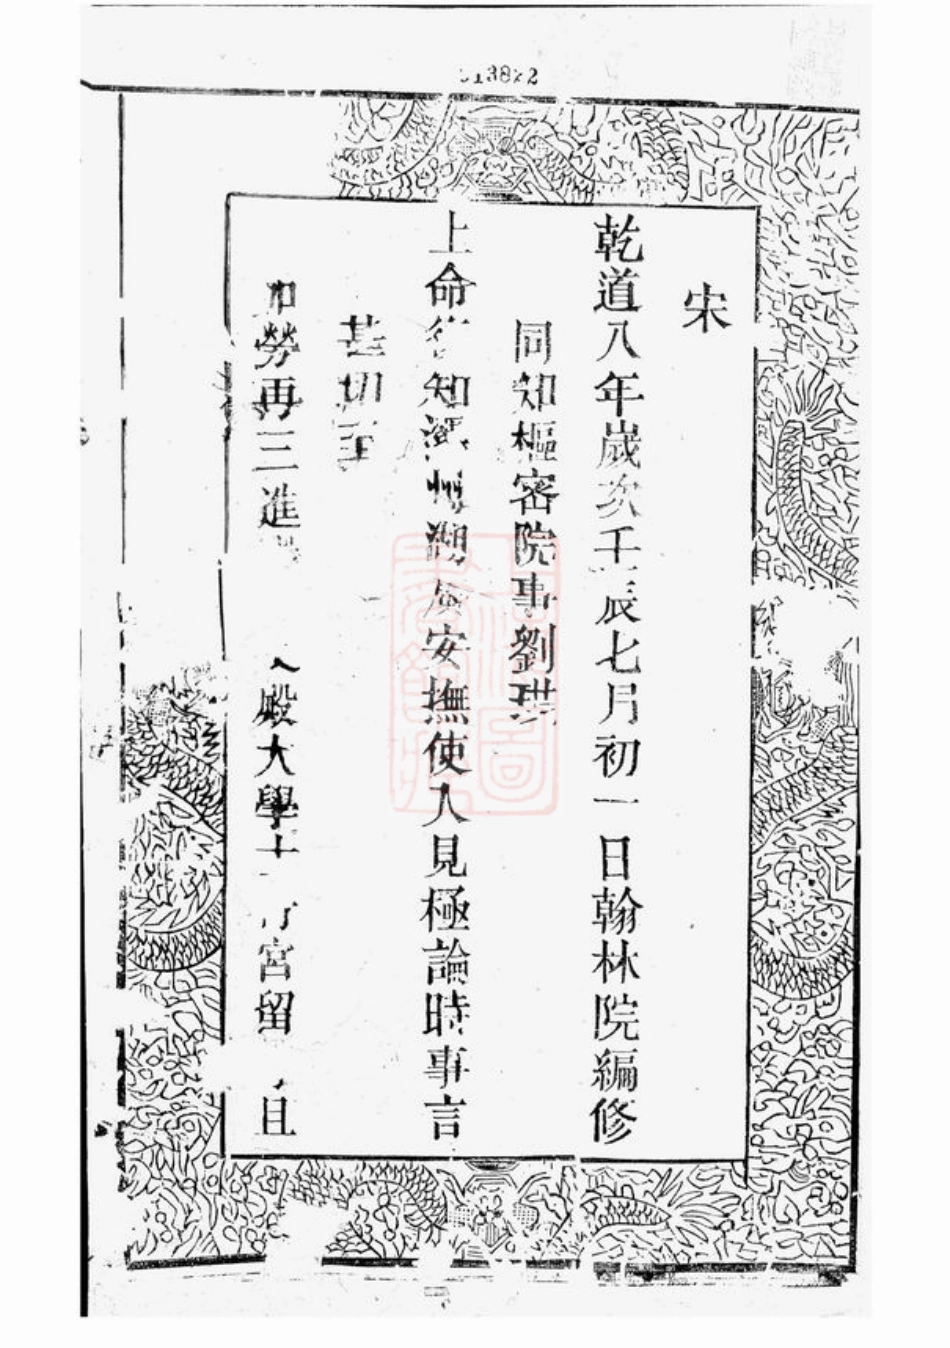 宋
乾道八年歲次壬辰七月初一日翰林院編修
同知樞密院事劉珙
上命知潭州湖安撫使入見極論時事言
甚切至
勞再三進
殿大學士宮留且